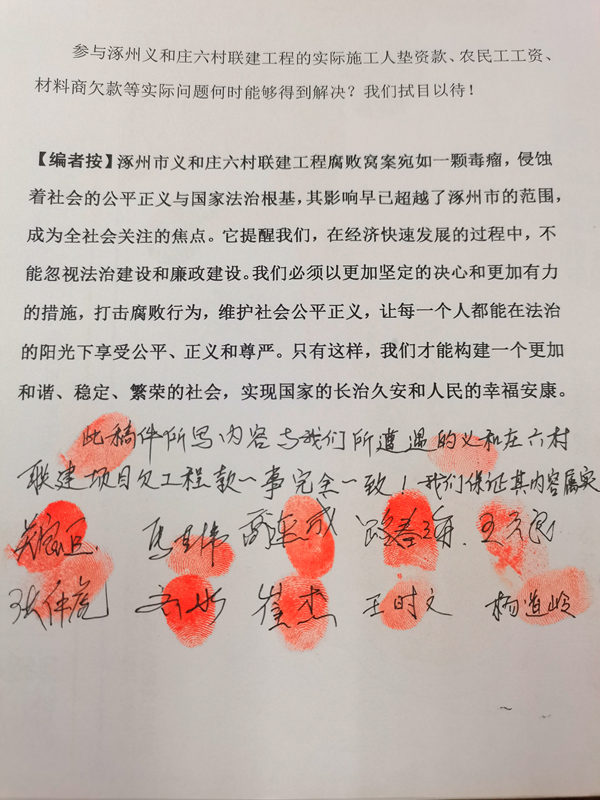 参与涿州义和庄六村联建工程的实际施工人垫资款、农民工工资、
材料商欠款等实际问题何时能够得到解决？我们拭目以待！
【编者按】涿州市义和庄六村联建工程腐败窝案宛如一颗毒瘤，侵蚀
着社会的公平正义与国家法治根基，其影响早已超越了涿州市的范围，
成为全社会关注的焦点。它提醒我们，在经济快速发展的过程中，不
能忽视法治建设和廉政建设。我们必须以更加坚定的决心和更加有力
的措施，打击腐败行为，维护社会公平正义，让每一个人都能在法治
的阳光下享受公平、正义和尊严。只有这样，我们才能构建一个更加
和谐、稳定、繁荣的社会，实现国家的长治久安和人民的幸福安康。
此稿件所写内容与我们所遭遇的义和庄六村
联建项目欠工程款一事完全一致！我们保证其内容属实
张伟虎 崔杰 王时文 杨道岭